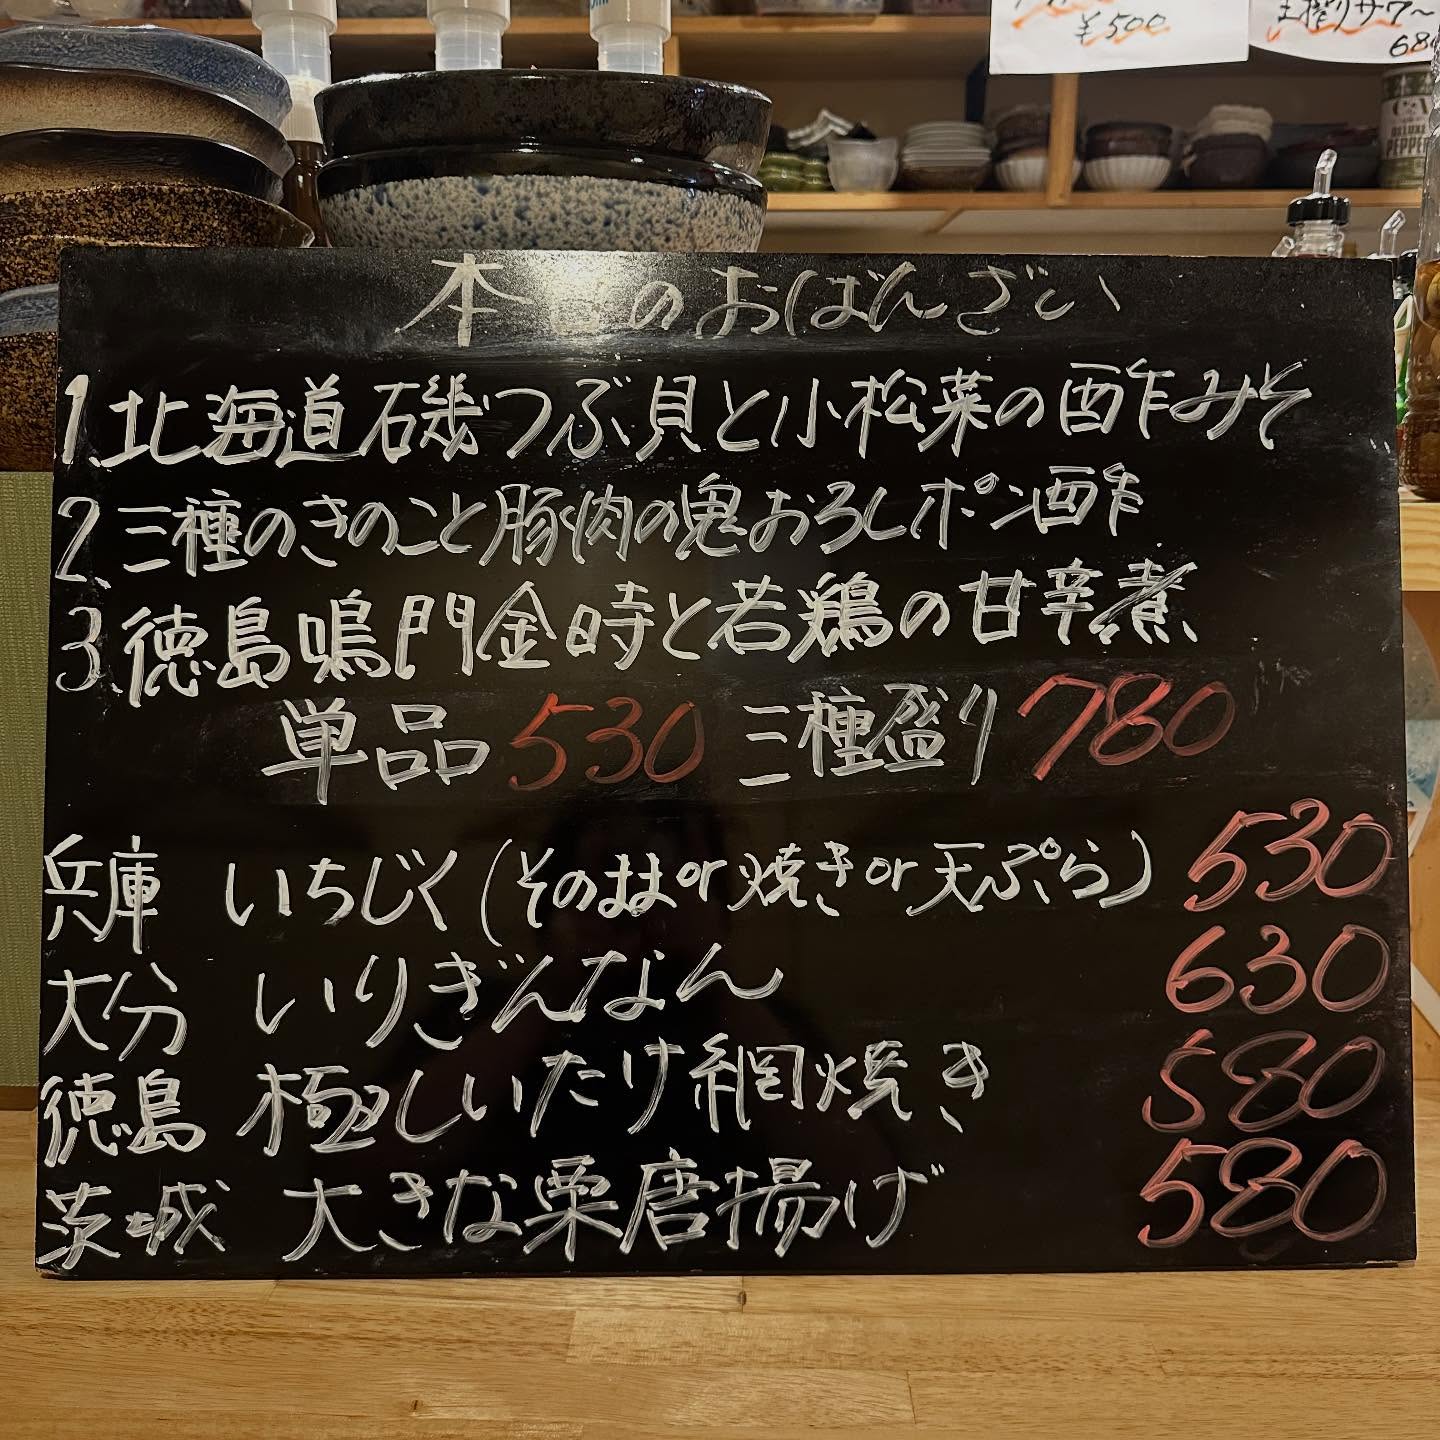 ¥500
搾りサワ〜
680
DELUXE
PEPPER
本日のおばんざい
1.北海道磯つぶ貝と小松菜の酢みそ
2.三種のきのこと豚肉の鬼おろしポン酢
3.徳島鳴門金時と若鶏の甘辛煮
単品530 三種盛り780
兵庫 いちじく(そのままor焼きor天ぷら) 530
大分 いりぎんなん 630
徳島 極しいたけ網焼き 580
茨城 大きな栗唐揚げ 580